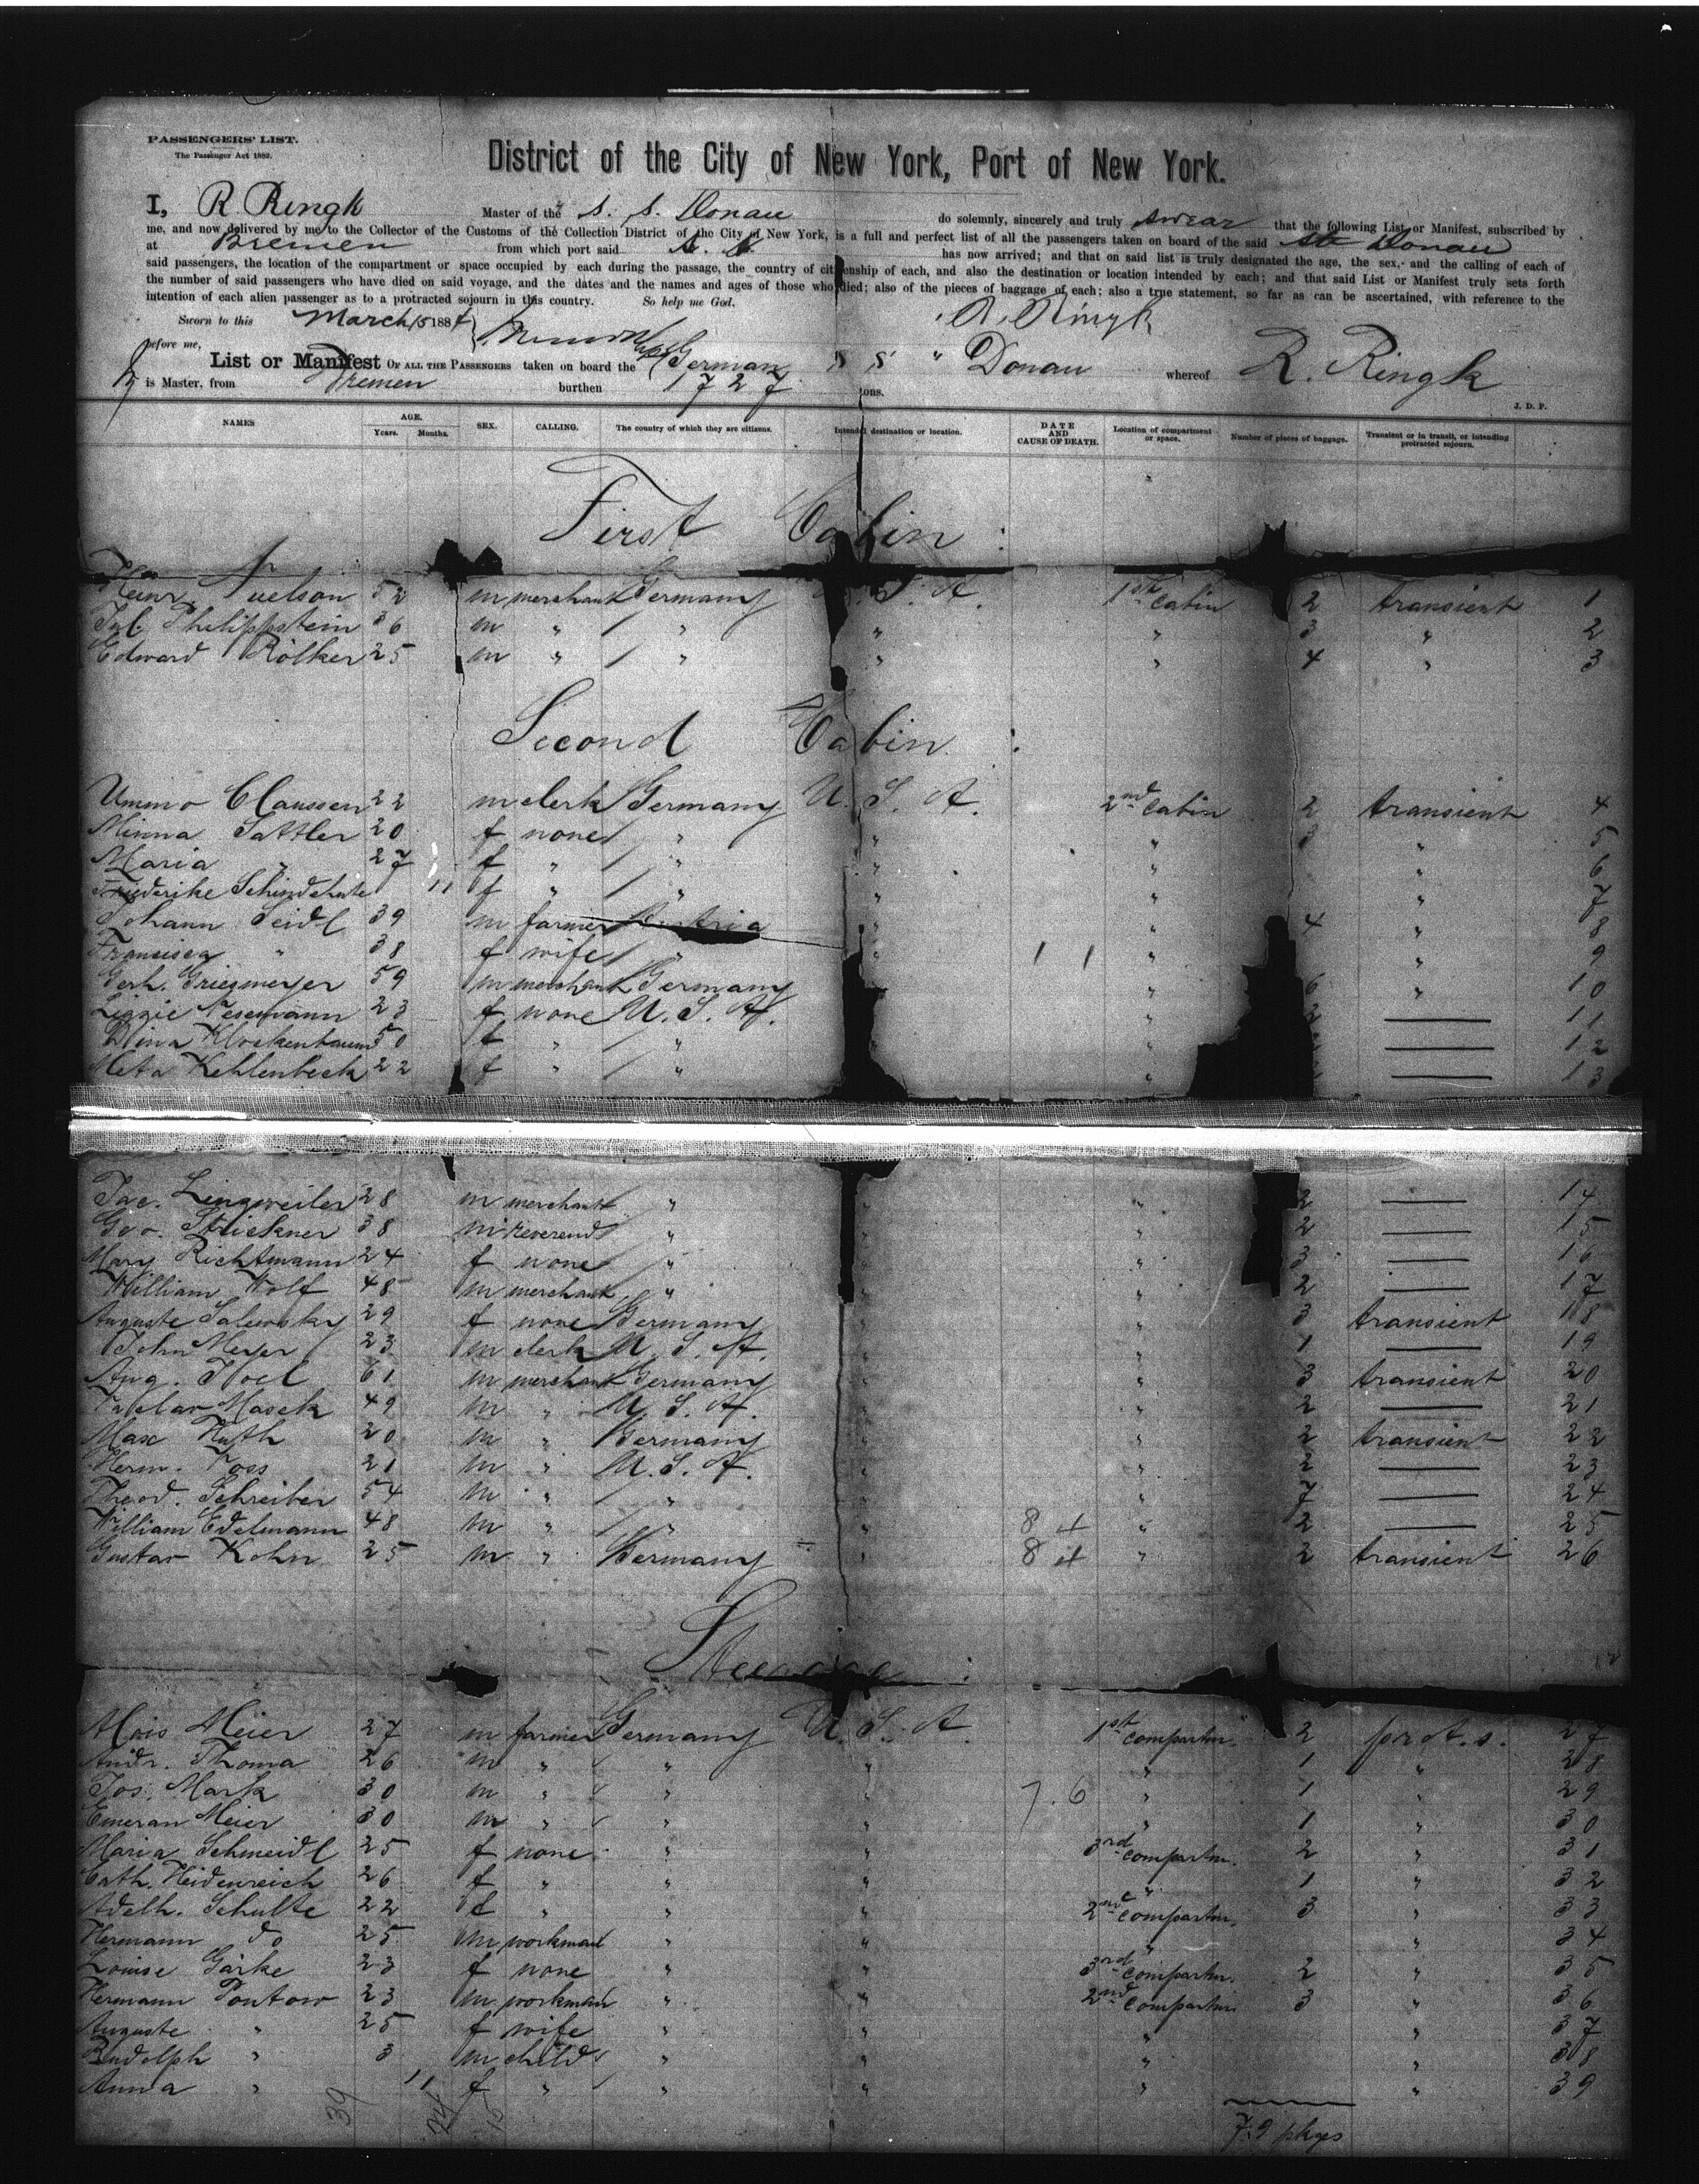 PASSENGERS' LIST.
The Passenger Act 1882.
District of the City of New York, Port of New York.
I, R. Ringk Master of the S. S. Donau do solemnly, sincerely and truly swear that the following List or Manifest, subscribed by
me, and now delivered by me to the Collector of the Customs of the Collection District of the City of New York, is a full and perfect list of all the passengers taken on board of the said Donau
at Bremen from which port said has now arrived; and that on said list is truly designated the age, the sex, and the calling of each of
said passengers, the location of the compartment or space occupied by each during the passage, the country of citizenship of each, and also the destination or location intended by each; and that said List or Manifest truly sets forth
the number of said passengers who have died on said voyage, and the dates and the names and ages of those who died; also of the pieces of baggage of each; also a true statement, so far as can be ascertained, with reference to the
intention of each alien passenger as to a protracted sojourn in this country. So help me God.
Sworn to this March 15 188 R. Ringk
before me,
List or Manifest OF ALL THE PASSENGERS taken on board the German S S " Donau whereof R. Ringk
is Master, from Bremen burthen 1727 tons.
J. D. P.
NAMES AGE. Years. Months. SEX. CALLING. The country of which they are citizens. Intended destination or location. DATE AND CAUSE OF DEATH. Location of compartment or space. Number of pieces of baggage. Transient or in transit, or intending protracted sojourn.
First Cabin :
Heinr. 52 m merchant Germany U. S. A. 1st Cabin 2 transient 1
Jul. Philippstein 36 m " " " " 3 " 2
Edward Rölker 25 m " " " " 4 " 3
Second Cabin :
Ummo Claussen 22 m clerk Germany U. S. A. 2nd Cabin 2 transient 4
Minna Sattler 20 f none " " " 3 " 5
Maria " 27 f " " " " " 6
Friederike Schindehute 11 f " " " " " 7
Johann Seidl 39 m farmer Austria " " 4 " 8
Francisca " 38 f wife " " 1 1 " " 9
Gerh. Griesmeyer 59 m merchant Germany " 6 " 10
Lizzie Nesemann 23 f none U. S. A. " 2 — 11
Dina Klockenbaum 50 f " " " " — 12
Meta Kehlenbeck 22 f " " " — 13
Jac. Lingweiler 28 m merchant " " " 2 — 14
Geo. Strickner 38 m reverend " " 2 — 15
Mary Richtmann 24 f none " " 3 — 16
William Wolf 48 m merchant " " 2 — 17
Auguste Salewsky 29 f none Germany " " 3 transient 18
John Meyer 23 m clerk U. S. A. " " 1 — 19
Aug. Noel 61 m merchant Germany " " 3 transient 20
Masek 49 m " U. S. A. " " 2 — 21
Max Huth 20 m " Germany " " 2 transient 22
Herm. Voss 21 m " U. S. A. " " 2 — 23
Theod. Schreiber 54 m " " " " 7 — 24
William Edelmann 48 m " " " " 2 — 25
Gustav Kohn 25 m " Germany " " 2 transient 26
Steerage :
Alois Meier 27 m farmer Germany U. S. A. 1st compartm. 2 prot. s. 27
Andr. Thoma 26 m " " " " 1 " 28
Jos. Mark 30 m " " " 7.6 " 1 " 29
Emeran Meier 30 m " " " " 1 " 30
Maria Schmeidl 25 f none " " 3rd compartm. 2 " 31
Cath. Heidenreich 26 f " " " " 1 " 32
Adelh. Schulte 22 f " " " 2nd compartm. 3 " 33
Hermann do 25 m workman " " " " 34
Louise Gärke 23 f none " " 3rd compartm. 2 " 35
Hermann Pontow 23 m workman " " 2nd compartm 3 " 36
Auguste " 25 f wife " " " " 37
Rudolph " 3 m child " " " " 38
Anna " 11 f " " " " " 39
39 24 15
79 pkgs